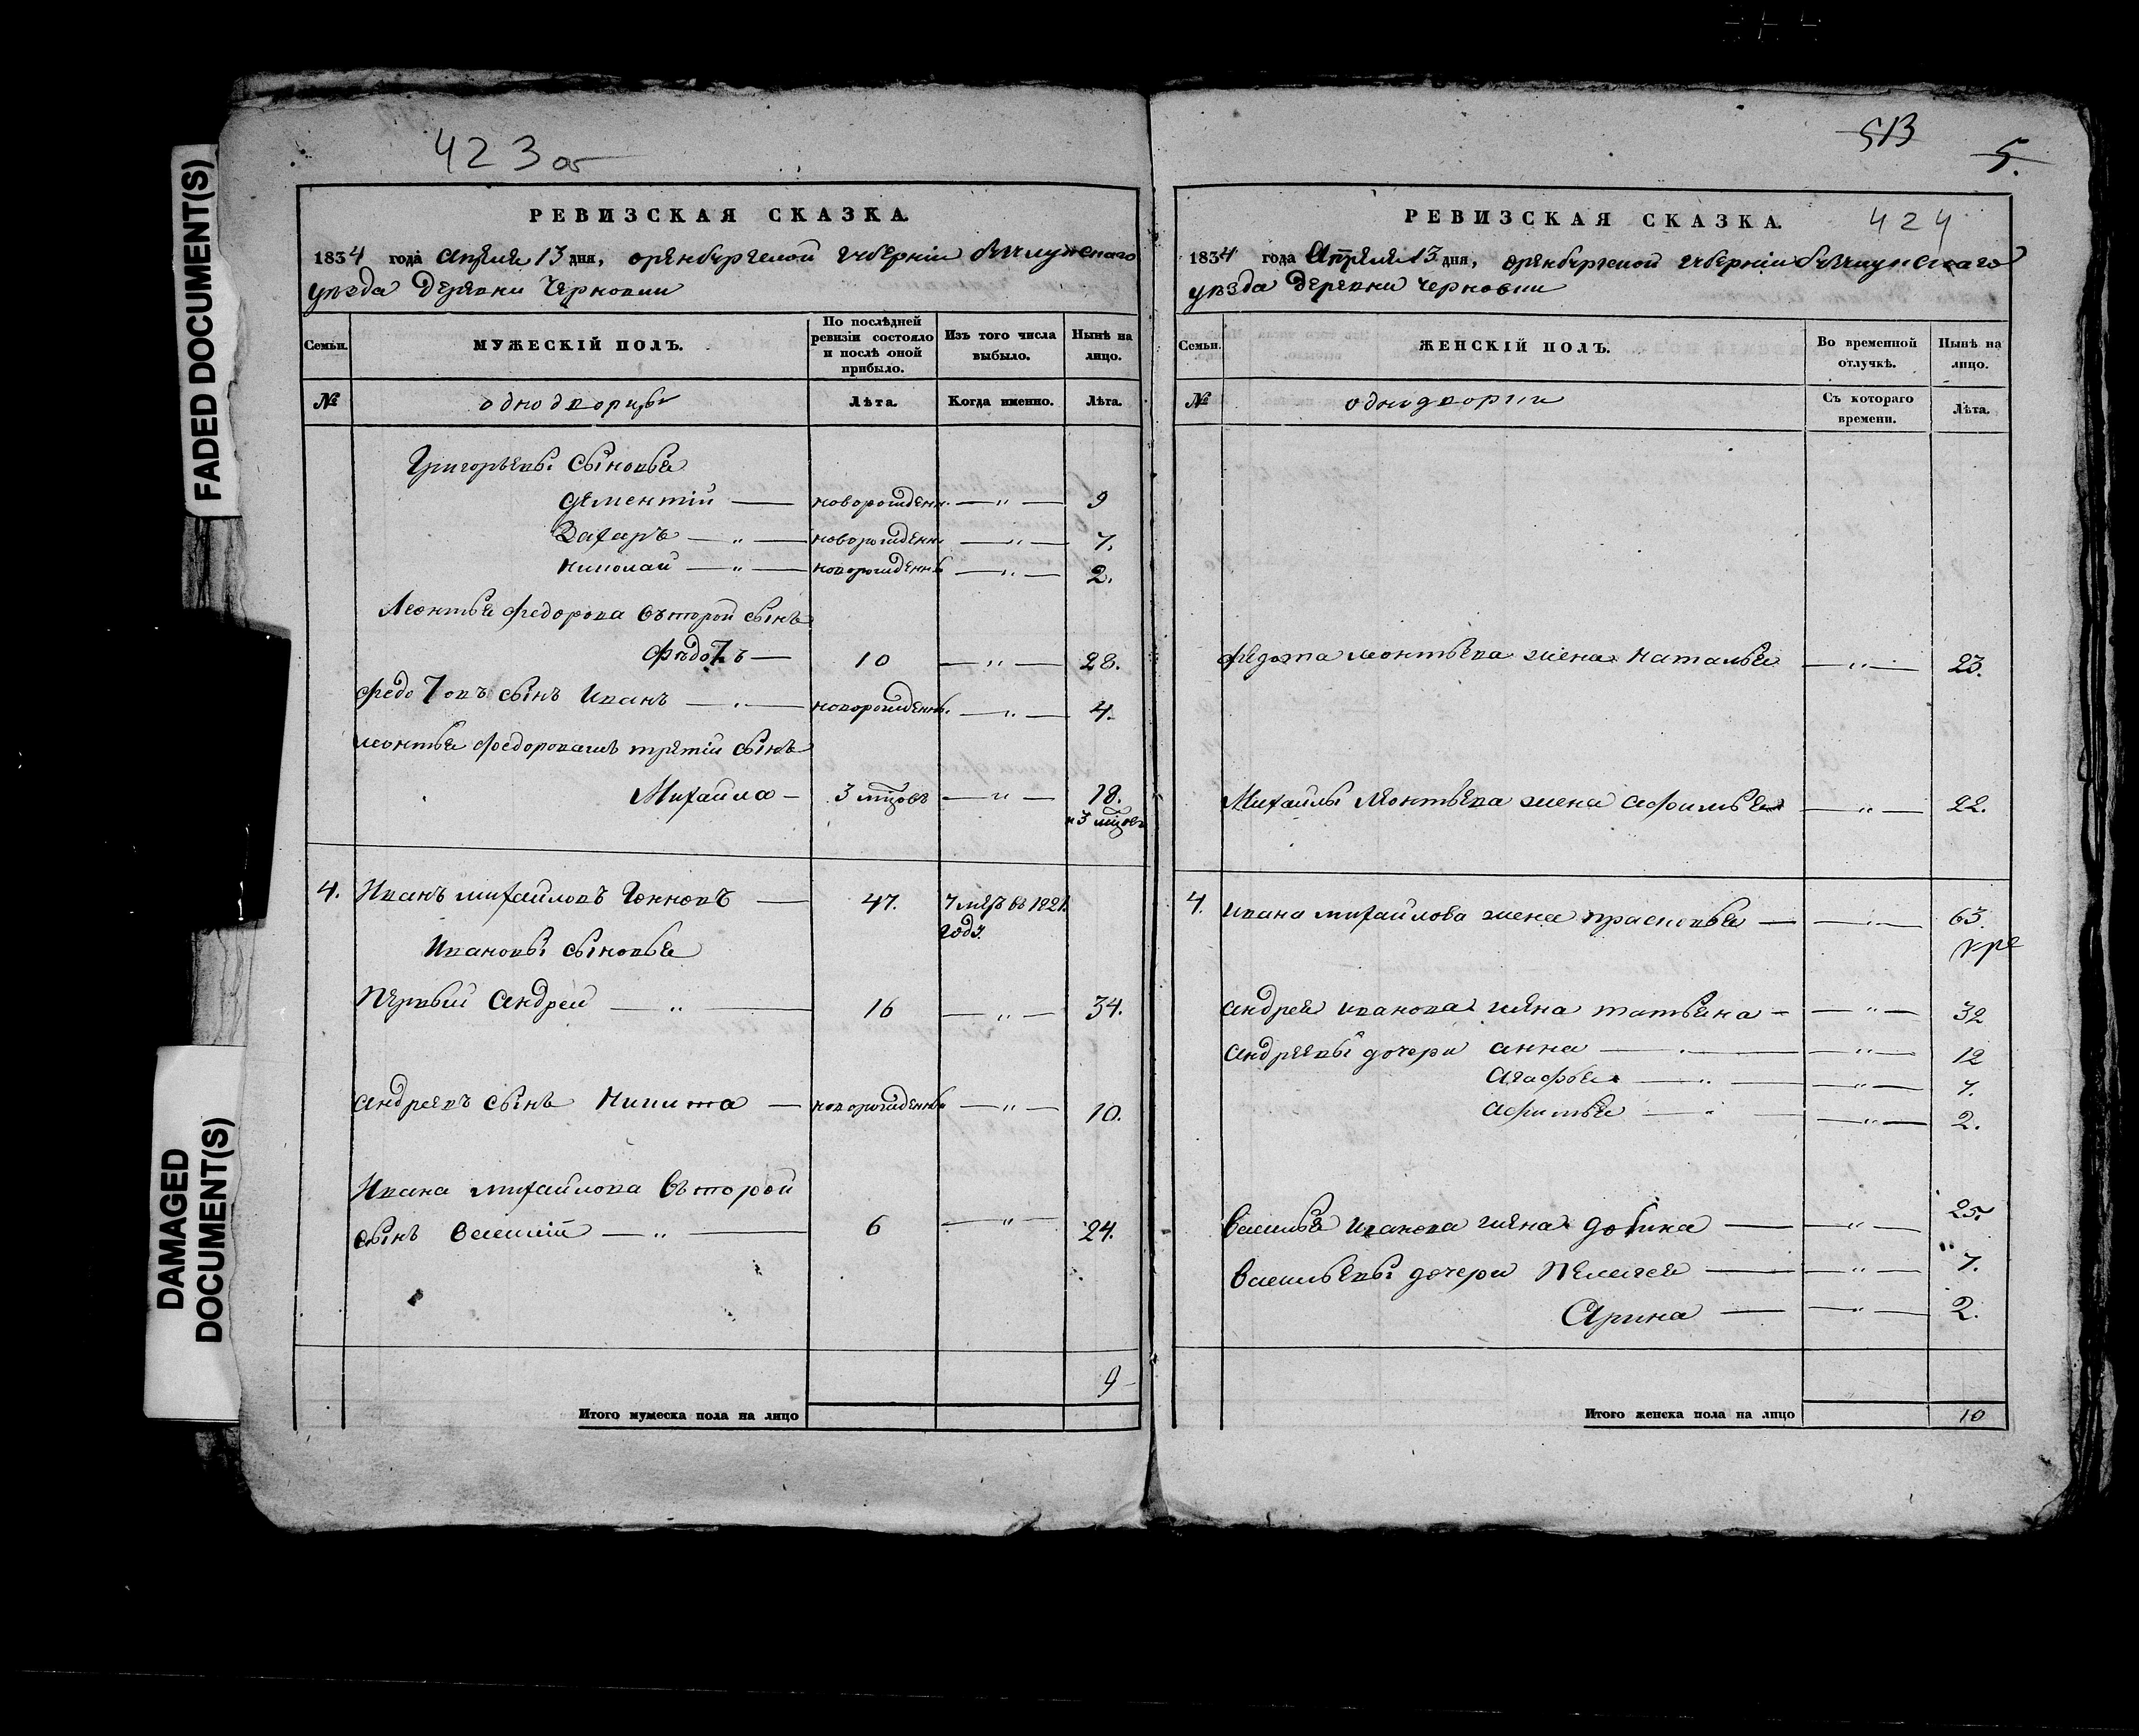 FADED DOCUMENT(S)
DAMAGED
DOCUMENT(S)
423 об
РЕВИЗСКАЯ СКАЗКА.
1834 года Апреля 13 дня, оренбургской губернии
уезда Деревни Черновки
Семьи.
МУЖЕСКІЙ ПОЛЪ.
По послѣдней ревизіи состояло и послѣ оной прибыло.
Изъ того числа выбыло.
Нынѣ на лицо.
№
однодворцы
Лѣта.
Когда именно.
Лѣта.
Григорьевы сыновья
Дементій — новорожден. — " — 9
Захаръ — " — новорожден. — " — 7.
Николай — " — новорожденны — " — 2.
Леонтья Федорова въторой сынъ
Федотъ — 10 — " — 28.
Федотовъ сынъ Иванъ — " — новорожденны. — " — 4.
Леонтья Федорова третій сынъ
Михайла — 3 мцовъ — " — 18.
и 3 мцовъ
4. Иванъ Михайловъ — 47. умеръ въ 1821.
году.
Ивановы сыновья
Первый Андрей — " — 16 — " — 34.
Андреевъ сынъ Никита — новорожденны — " — 10.
Ивана Михайлова въторой
сынъ Василій — " — 6 — " — 24.
9
Итого мужеска пола на лицо
513
5.
РЕВИЗСКАЯ СКАЗКА. 424
1834 года Апреля 13 дня, оренбургской губерніи
уезда Деревни Черновки
Семьи.
ЖЕНСКІЙ ПОЛЪ.
Во временной отлучкѣ.
Нынѣ на лицо.
№
однодворки
Съ котораго времени.
Лѣта.
Федота Леонтьева жена Наталья — " — 23.
Михайлы Леонтьева жена Афимья — " — 22.
4. Ивана Михайлова жена Прасковья — " — 63.
Андрея Иванова жена Татьяна — " — 32
Андреевы дочери Анна — " — 12
Агафья — " — 7.
Афимья — " — 2.
Василья Иванова жена — " — 25.
Васильевы дочери Пелагея — " — 7.
Арина — " — 2.
Итого женска пола на лицо 10